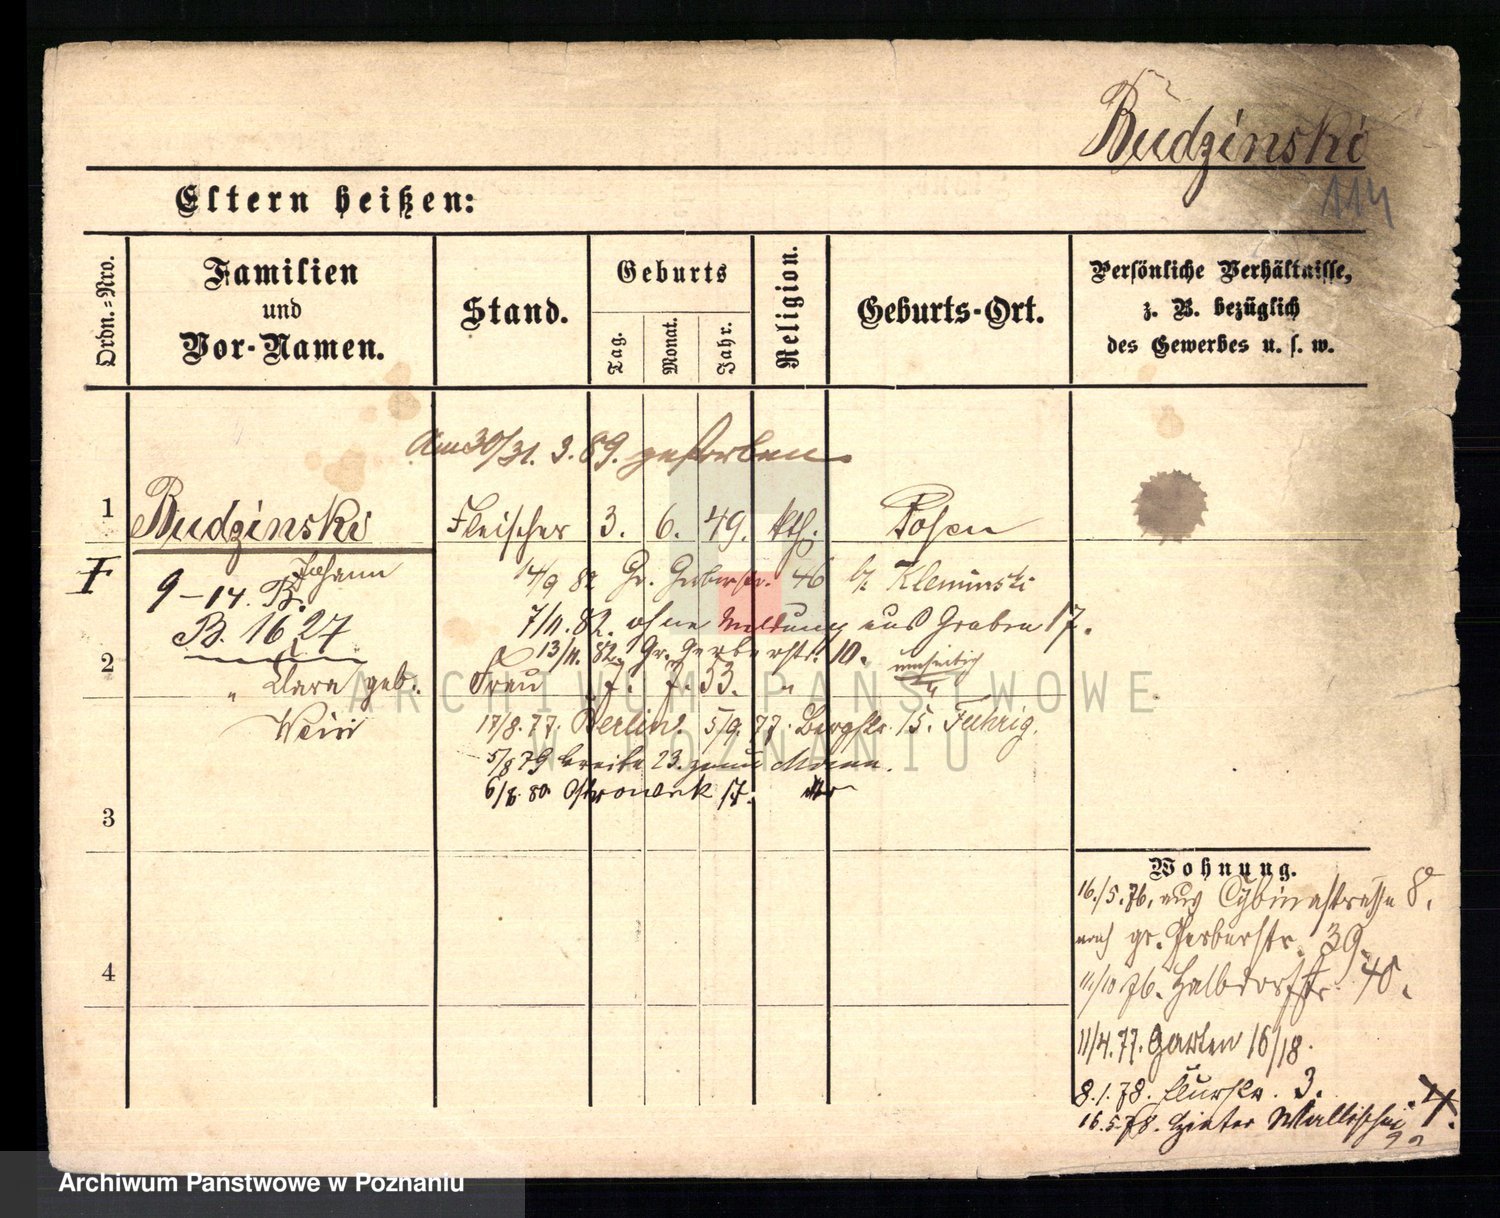 Budzinski
114
Eltern heißen:
Ordn.=Nro.
Familien
und
Vor-Namen.
Stand.
Geburts
Tag.
Monat.
Jahr.
Religion.
Geburts-Ort.
Persönliche Verhältnisse,
z. B. bezüglich
des Gewerbes u. s. w.
Am 30/31. 3. 89. gestorben
1
Budzinski Fleischer 3. 6. 49. kth. Posen
Johann
9-14. B.
14/9 82 Gr. Gerberstr. 46 bz Kleminski
B. 1627
7/11. 82. ohne Meldung aus Graben 17.
13/11. 82. Gr. Gerberstr. 10.
umseitig
2
" Clara geb. Frau 7. 7. 53. " "
Weiß
17/8. 77. Berlin. 5/9. 77. Bergstr. 15. Fuhrig.
5/8 79 breite 23. zum Mann.
6/8. 80 Ostrowek 17.
3
4
Wohnung.
16./5. 76. aus Cybinastrasse 8.
nach gr. Gerberstr. 39.
11/10 76. Halbdorfstr. 40.
11/4. 77. Garten 16/18.
8. 1. 78. Thurstr. 3.
16. 5. 78. hinter Wallischei
ARCHIWUM PAŃSTWOWE
W POZNANIU
Archiwum Państwowe w Poznaniu